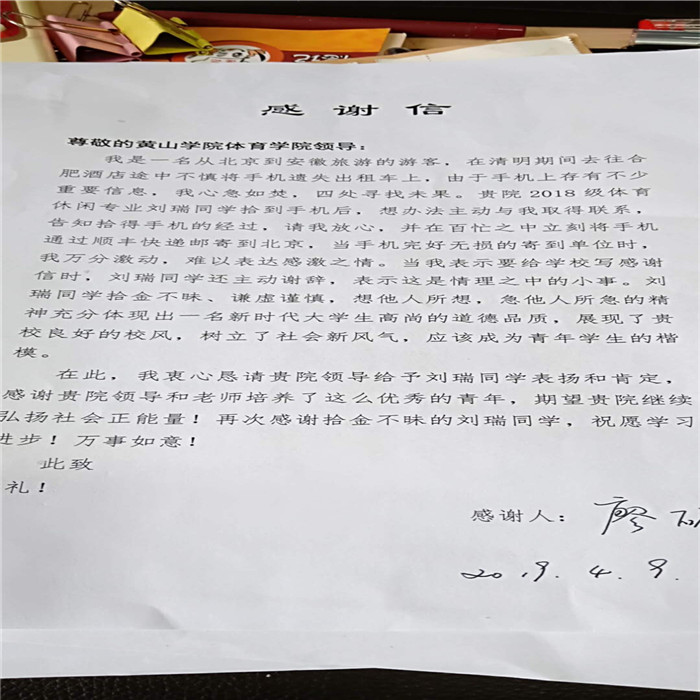 感谢信
尊敬的黄山学院体育学院领导：
我是一名从北京到安徽旅游的游客，在清明期间去往合
肥酒店途中不慎将手机遗失出租车上，由于手机上存有不少
重要信息，我心急如焚，四处寻找未果。贵院2018级体育
休闲专业刘瑞同学拾到手机后，想办法主动与我取得联系，
告知拾得手机的经过，请我放心，并在百忙之中立刻将手机
通过顺丰快递邮寄到北京，当手机完好无损的寄到单位时，
我万分激动，难以表达感激之情。当我表示要给学校写感谢
信时，刘瑞同学还主动谢辞，表示这是情理之中的小事。刘
瑞同学拾金不昧、谦虚谨慎，想他人所想，急他人所急的精
神充分体现出一名新时代大学生高尚的道德品质，展现了贵
校良好的校风，树立了社会新风气，应该成为青年学生的楷
模。
在此，我衷心恳请贵院领导给予刘瑞同学表扬和肯定，
感谢贵院领导和老师培养了这么优秀的青年，期望贵院继续
弘扬社会正能量！再次感谢拾金不昧的刘瑞同学，祝愿学习
进步！万事如意！
此致
礼！
感谢人：廖
2019.4.9.